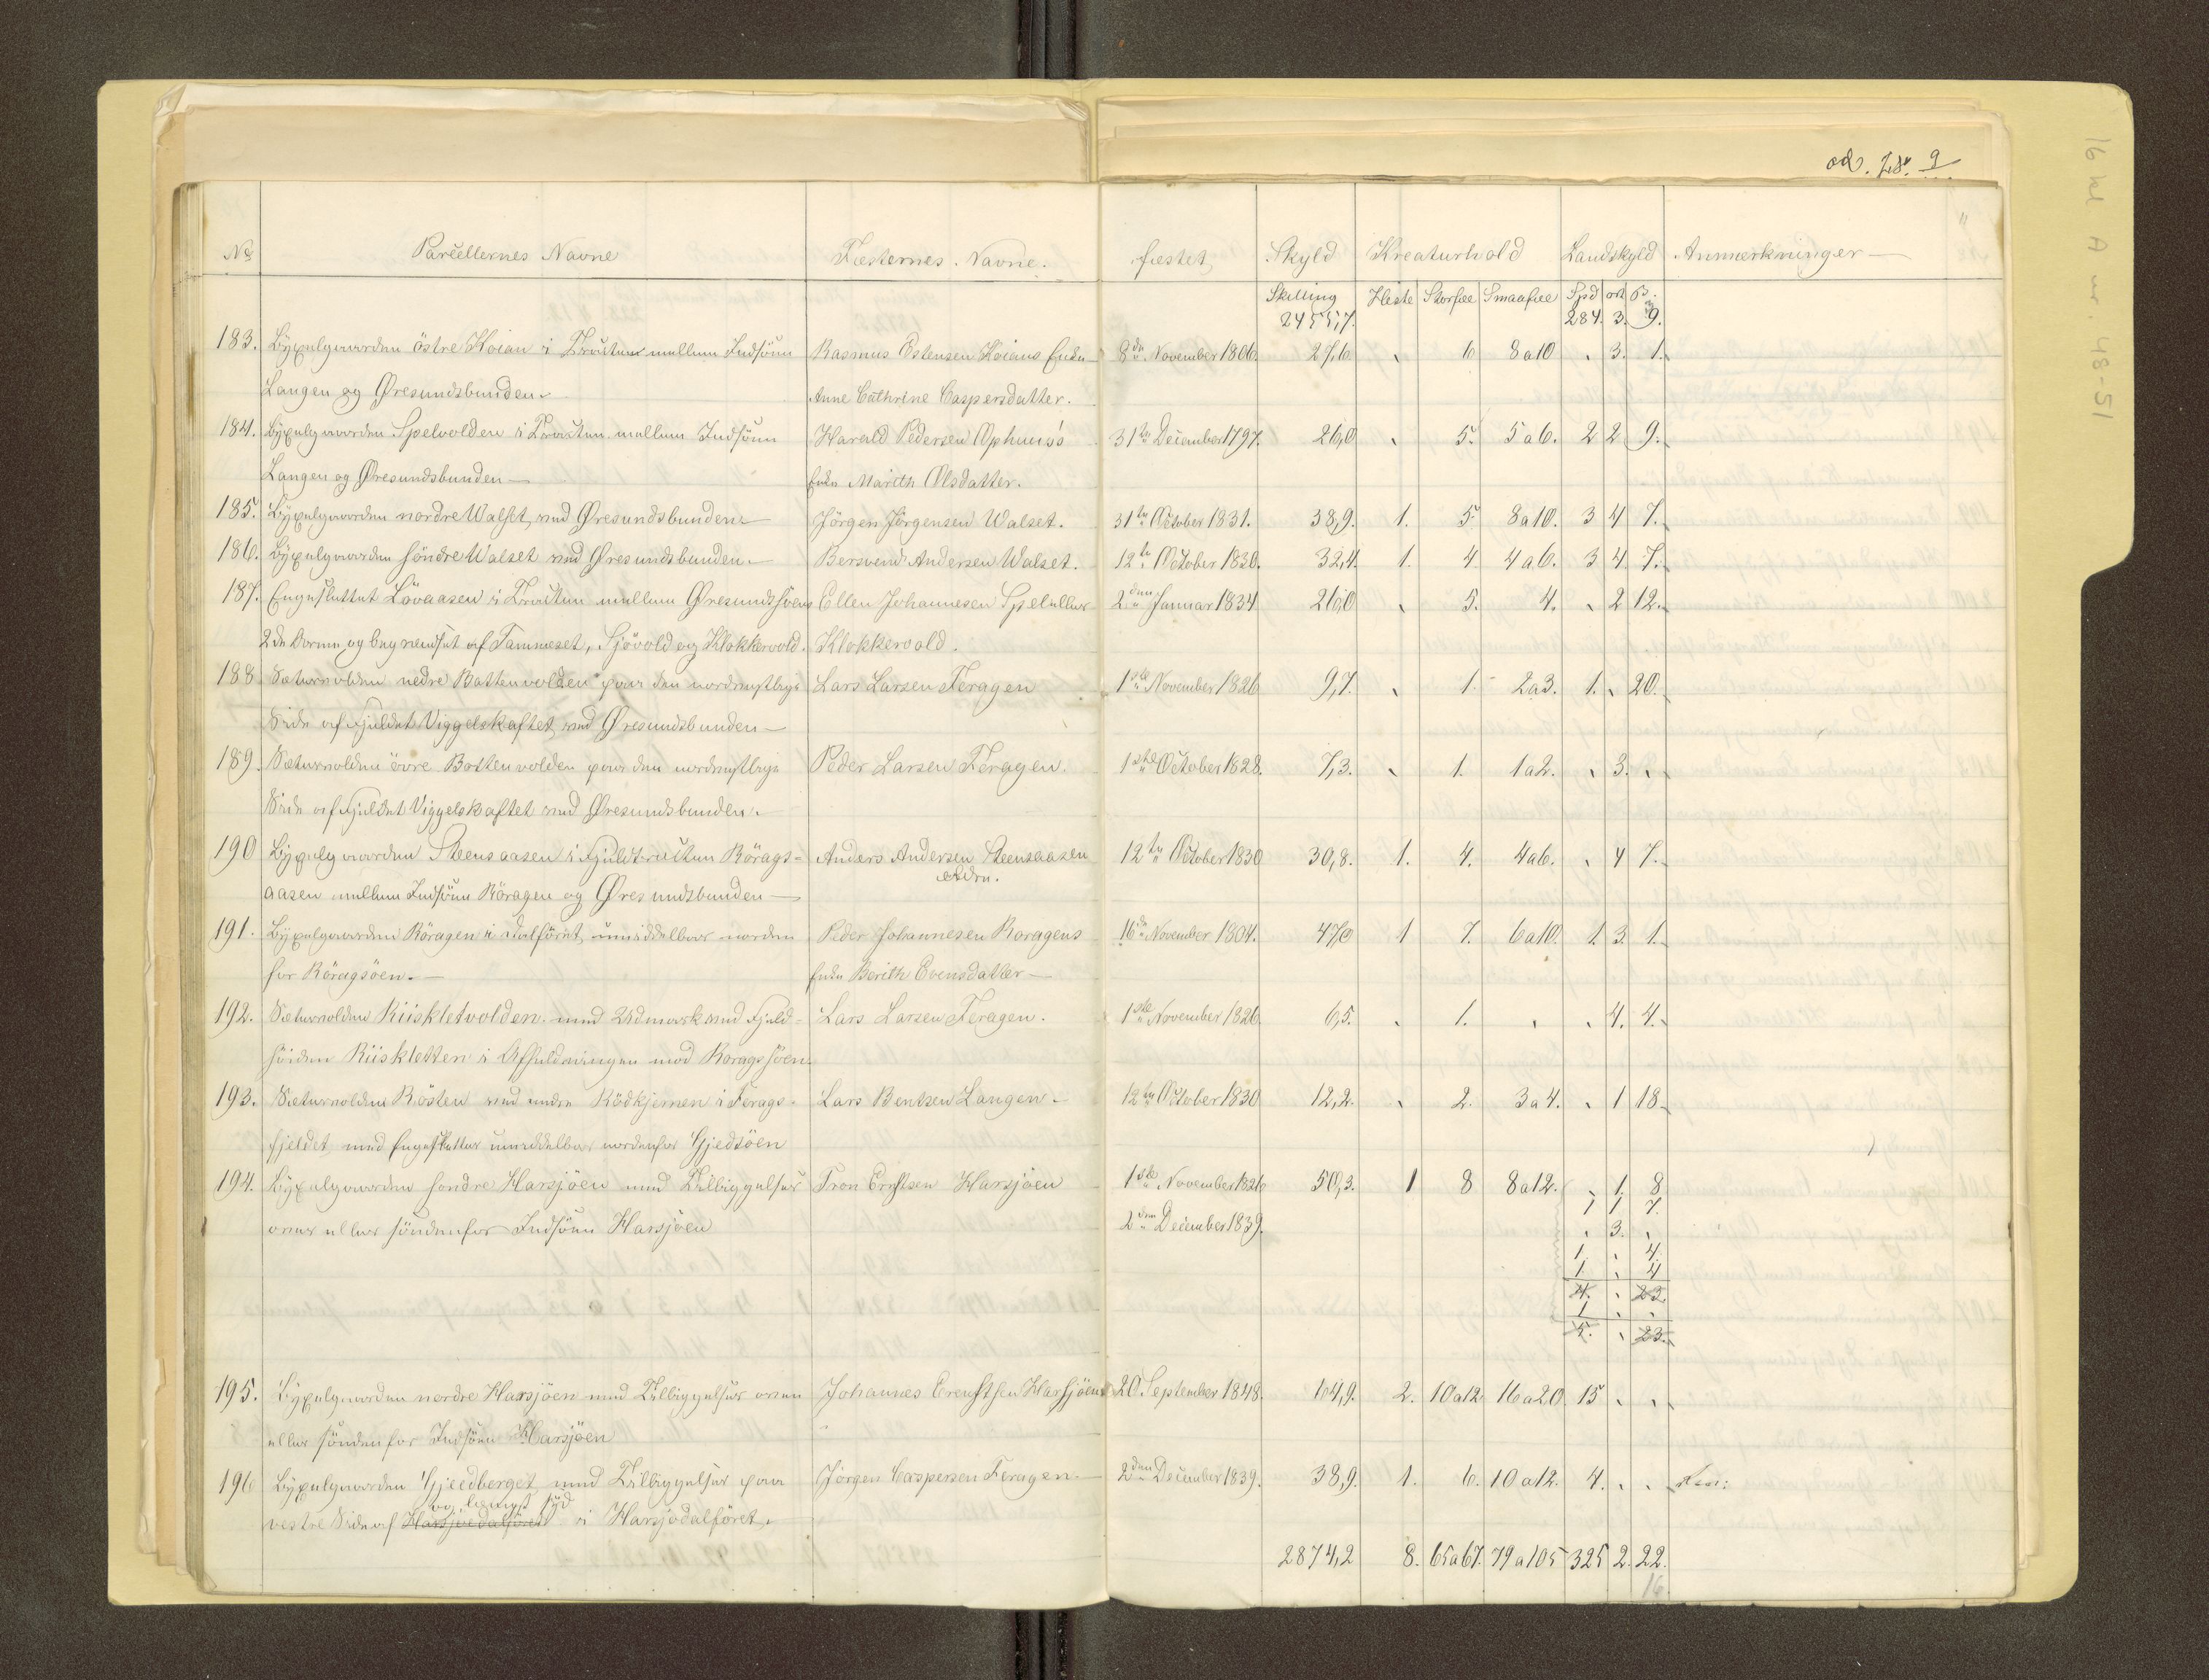 ad. 9
16 kl A nr. 48-51
11
No Parcellernes Navne Fæsternes Navne. fæstet Skyld Kreaturhold Landskyld Anmerkninger
Skilling Heste Storfæ Smaafæ Spd ort ß
2455,7. 284. 3. 9.
183. Bÿxelgaarden östre Koien i Tracten mellem Indsöen Rasmus Estensen Koiens Enke 8de November 1806. 27,6. 6 8 a 10 3. 1.
Langen og Øresundsbunden Anne Cathrine Caspersdatter.
184. Bÿxelgaarden Spelvolden i Tracten mellem Indsöen Harald Pedersen Ophuus's 31te December 1797. 26,0 5. 5 a 6. 2 2 9.
Langen og Øresundsbunden Enke Marith Olsdatter.
185. Bÿxelgaarden nordre Walset ved Øresundsbunden Jörgen Jörgensen Walset. 31te October 1831. 38,9. 1. 5 8 a 10. 3 4 7.
186. Bÿxelgaarden söndre Walset ved Øresundsbunden. Bersvend Andersen Walset. 12te October 1830. 32,4. 1. 4. 4 a 6. 3 4 7.
187. Engeslettet Lövaasen i Tracten mellem Øresundsöens Ellen Johannesen Speleller 2den Januar 1834 26,0 5. 4. 2 12.
2de Arme og begrændset af Tammeset, Sjövold og Klokkervold. Klokkervold.
188. Sætervolden nedre Battenvolden paa den nordvestlige Lars Larsen Feragen 1ste November 1826 9,7. 1. 2 a 3. 1. 20.
Side af Fjeldet Viggelskaftet ved Øresundsbunden
189. Sætervolden övre Bottenvolden paa den nordvestlige Peder Larsen Feragen. 1ste October 1828. 7,3. 1. 1 a 2. 3.
Side af Fjeldet Viggelskaftet ved Øresundsbunden.
190 Bÿxelgaarden Steensaasen i Fjeldtracten Rörags- Anders Andersen Steensaasen 12te October 1830 30,8. 1. 4. 4 a 6. 4 7.
aasen mellem Indsöen Röragen og Øresundsbunden
191. Bÿxelgaarden Röragen i Dalföret umiddelbar norden Peder Johannesen Roragens 16de November 1804. 47,0 1 7. 6 a 10. 1. 3. 1.
for Röragsöen. Enke Berith Evensdatter
192. Sætervolden Riiskletvolden med Udmark ved Fjeld- Lars Larsen Feragen. 1ste November 1826 6,5. 1. 4. 4.
höiden Riiskletten i Afheldningen mod Roragsöen.
193. Sætervolden Rösten ved nedre Rödkjernen i Ferags- Lars Bentsen Langen. 12te October 1830 12,2. 2. 3 a 4. 1 18
fjeldet med Engesletter umiddelbar nordenfor Gjedsöen
194. Bÿxelgaarden söndre Harsjöen med Tilbyggelser Tron Ernstsen Harsjöen 1ste November 1826 50,3. 1 8 8 a 12. 1. 8
oven eller söndenfor Indsöen Harsjöen 2den December 1839. 1 1 7.
3.
1. 4.
1. 4
4. 23.
1
5. 23.
195. Bÿxelgaarden nordre Harsjöen med Tilbyggelser oven Johannes Ernstsen Harsjöen 20 September 1848. 104,9. 2. 10 a 12 16 a 20 15
eller söndenfor Indsöen Harsjöen
196 Bÿxelgaarden Gjeedberget med Tilbyggelser paa Jörgen Caspersen Feragen. 2den December 1839. 38,9. 1. 6. 10 a 12. 4.
og længst syd
vestre Side af Harsjoedalföret i Harsjodalföret.
2874,2 8. 65 a 67. 79 a 105 325 2. 22.
16